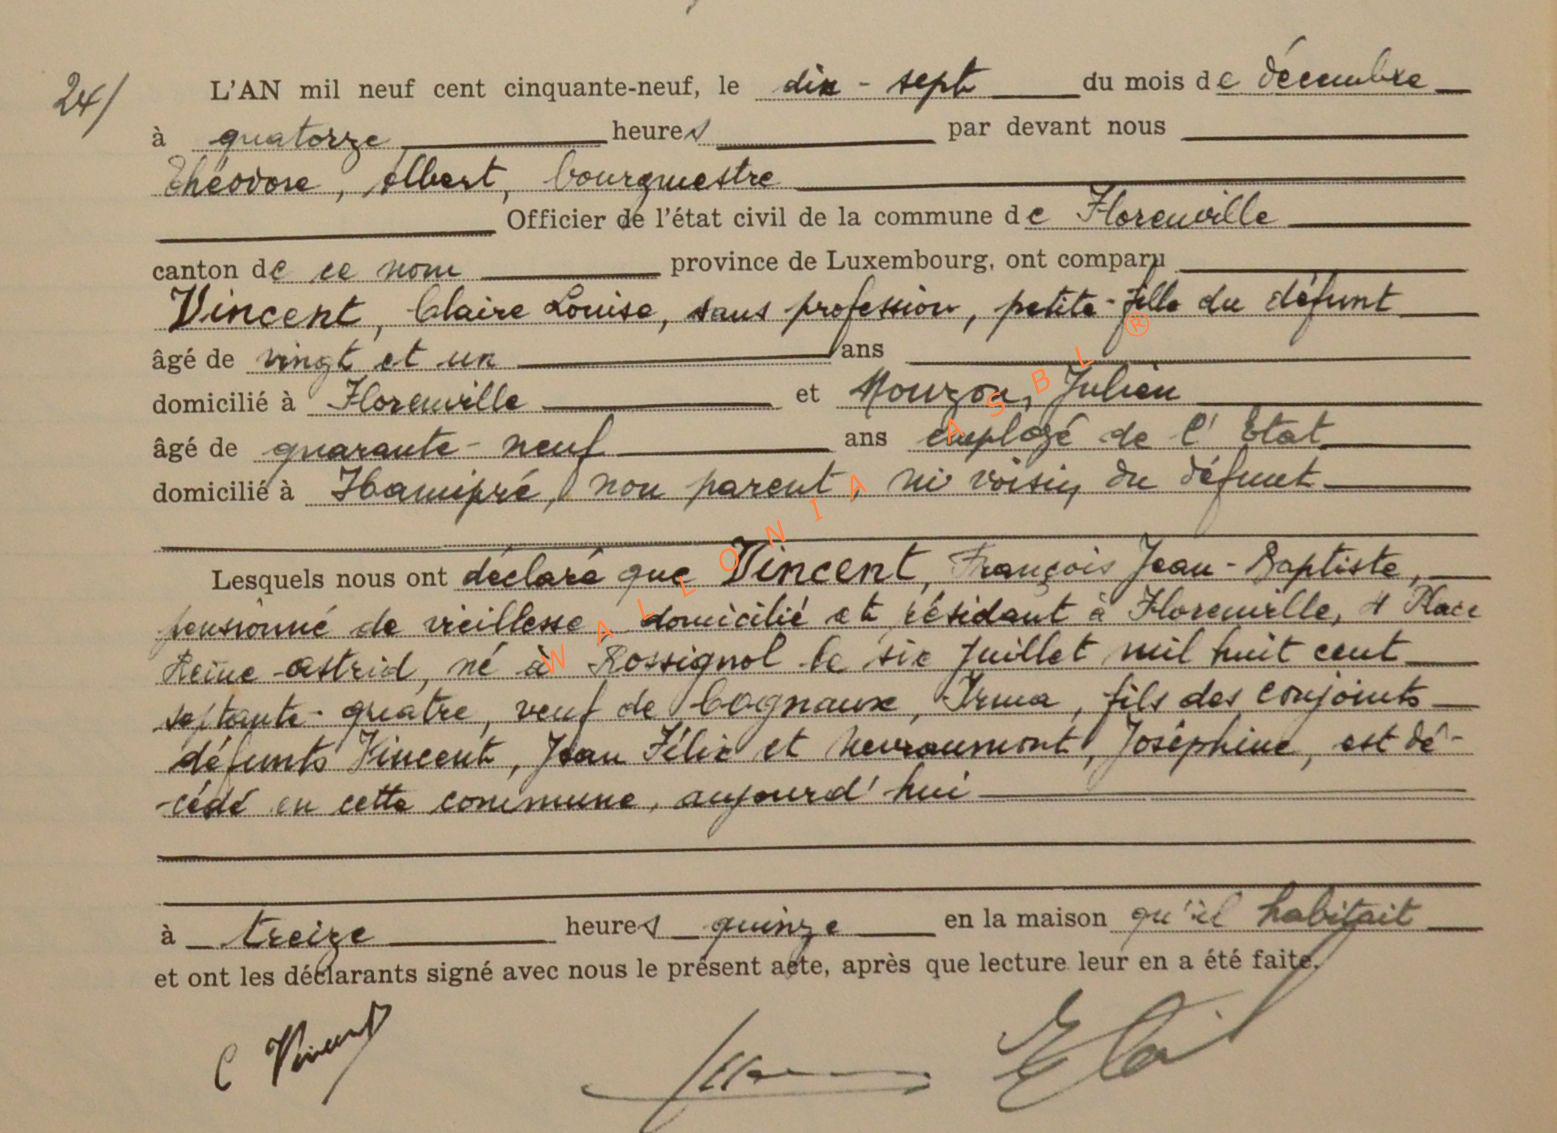 24/
L'AN mil neuf cent cinquante-neuf, le dix - sept du mois de décembre
à quatorze heures par devant nous
Théodore, Albert, bourgmestre
Officier de l'état civil de la commune de Florenville
canton de ce nom province de Luxembourg, ont comparu
Vincent, Claire Louise, sans profession, petite-fille du défunt
âgé de vingt et un ans
domicilié à Florenville et Mouzon, Julien
âgé de quarante-neuf ans employé de l'Etat
domicilié à Hamipré, non parent, ni voisin du défunt
Lesquels nous ont déclaré que Vincent, François Jean-Baptiste,
pensionné de vieillesse domicilié et résidant à Florenville, 4 Place
Reine Astrid, né à Rossignol le six juillet mil huit cent
septante-quatre, veuf de Cognaux, Irma, fils des conjoints
défunts Vincent, Jean Félix et Nevraumont, Joséphine, est dé-
-cédé en cette commune, aujourd'hui
à treize heures quinze en la maison qu'il habitait
et ont les déclarants signé avec nous le présent acte, après que lecture leur en a été faite.
C Vincent
WALLONIA ASBL ®